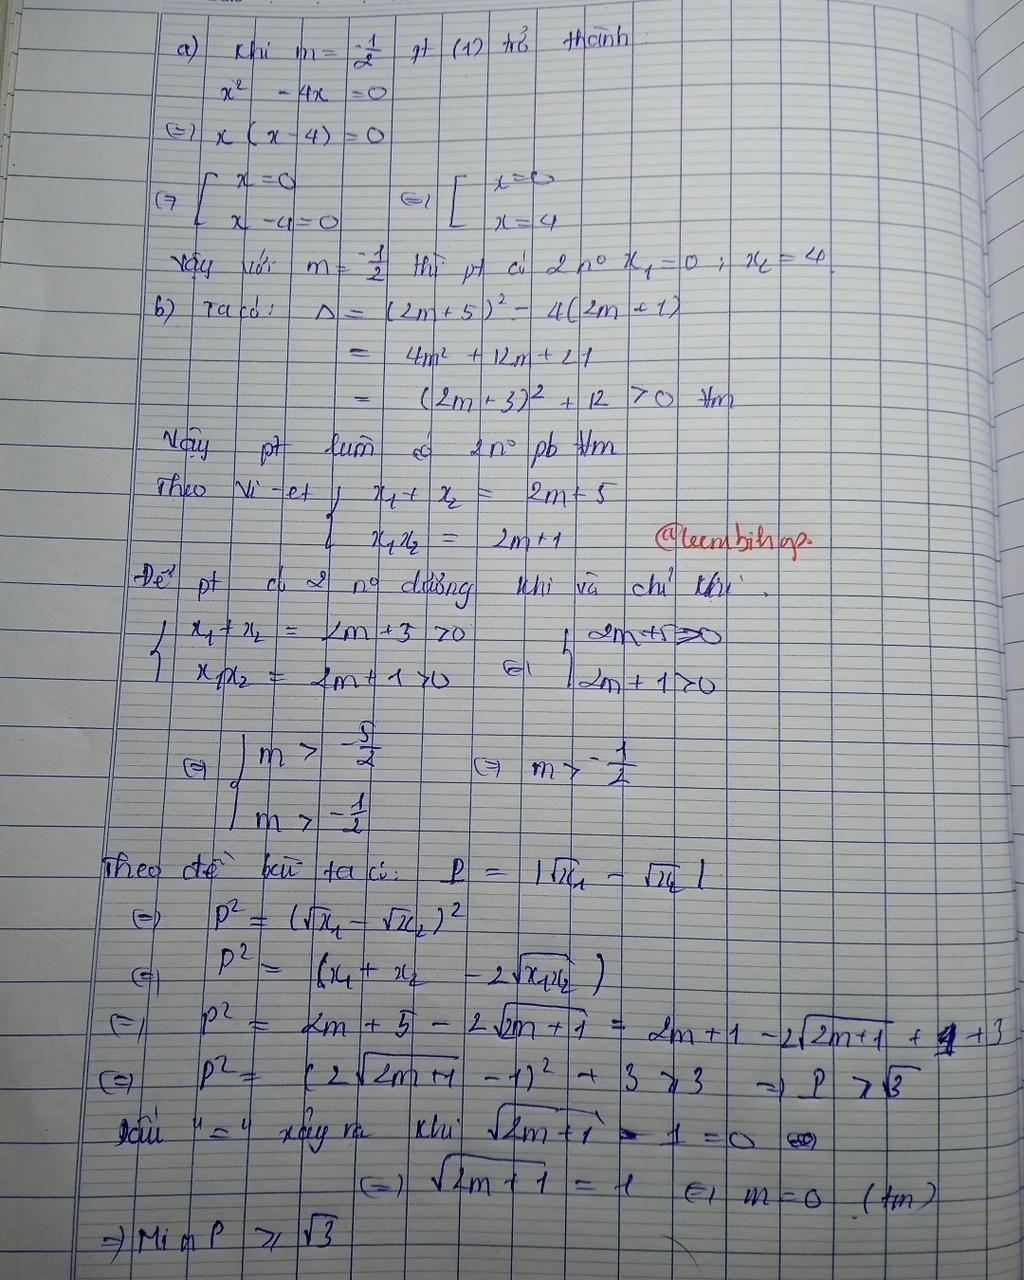 a) Khi m = -1/2 pt (1) trở thành
x² - 4x = 0
(=) x (x - 4) = 0
(=) [ x = 0 (=) [ x = 0
x - 4 = 0 x = 4
Vậy với m = -1/2 thì pt có 2 n° x₁ = 0 ; x₂ = 4
b) Ta có: Δ = (2m + 5)² - 4(2m + 1)
= 4m² + 12m + 21
= (2m + 3)² + 12 > 0 ∀m
Vậy pt luôn có 2 n° pb ∀m
Theo Vi-et { x₁ + x₂ = 2m + 5
x₁x₂ = 2m + 1 @leembihap.
Để pt có 2 n° dương khi và chỉ khi.
{ x₁ + x₂ = 2m + 3 > 0 { 2m + 5 > 0
x₁x₂ = 2m + 1 > 0 (=) 2m + 1 > 0
(=) { m > -5/2 (=) m > -1/2
m > -1/2
Theo đề bài ta có: P = |√x₁ - √x₂|
(=) P² = (√x₁ - √x₂)²
(=) P² = (x₁ + x₂ - 2√x₁x₂)
(=) P² = 2m + 5 - 2√2m + 1 = 2m + 1 - 2√2m + 1 + 1 + 3
(=) P² = (2√2m + 1 - 1)² + 3 ≥ 3 => P ≥ √3
Dấu "=" xảy ra khi √2m + 1 - 1 = 0
(=) √2m + 1 = 1 (=) m = 0 (tm)
=> Min P ≥ √3